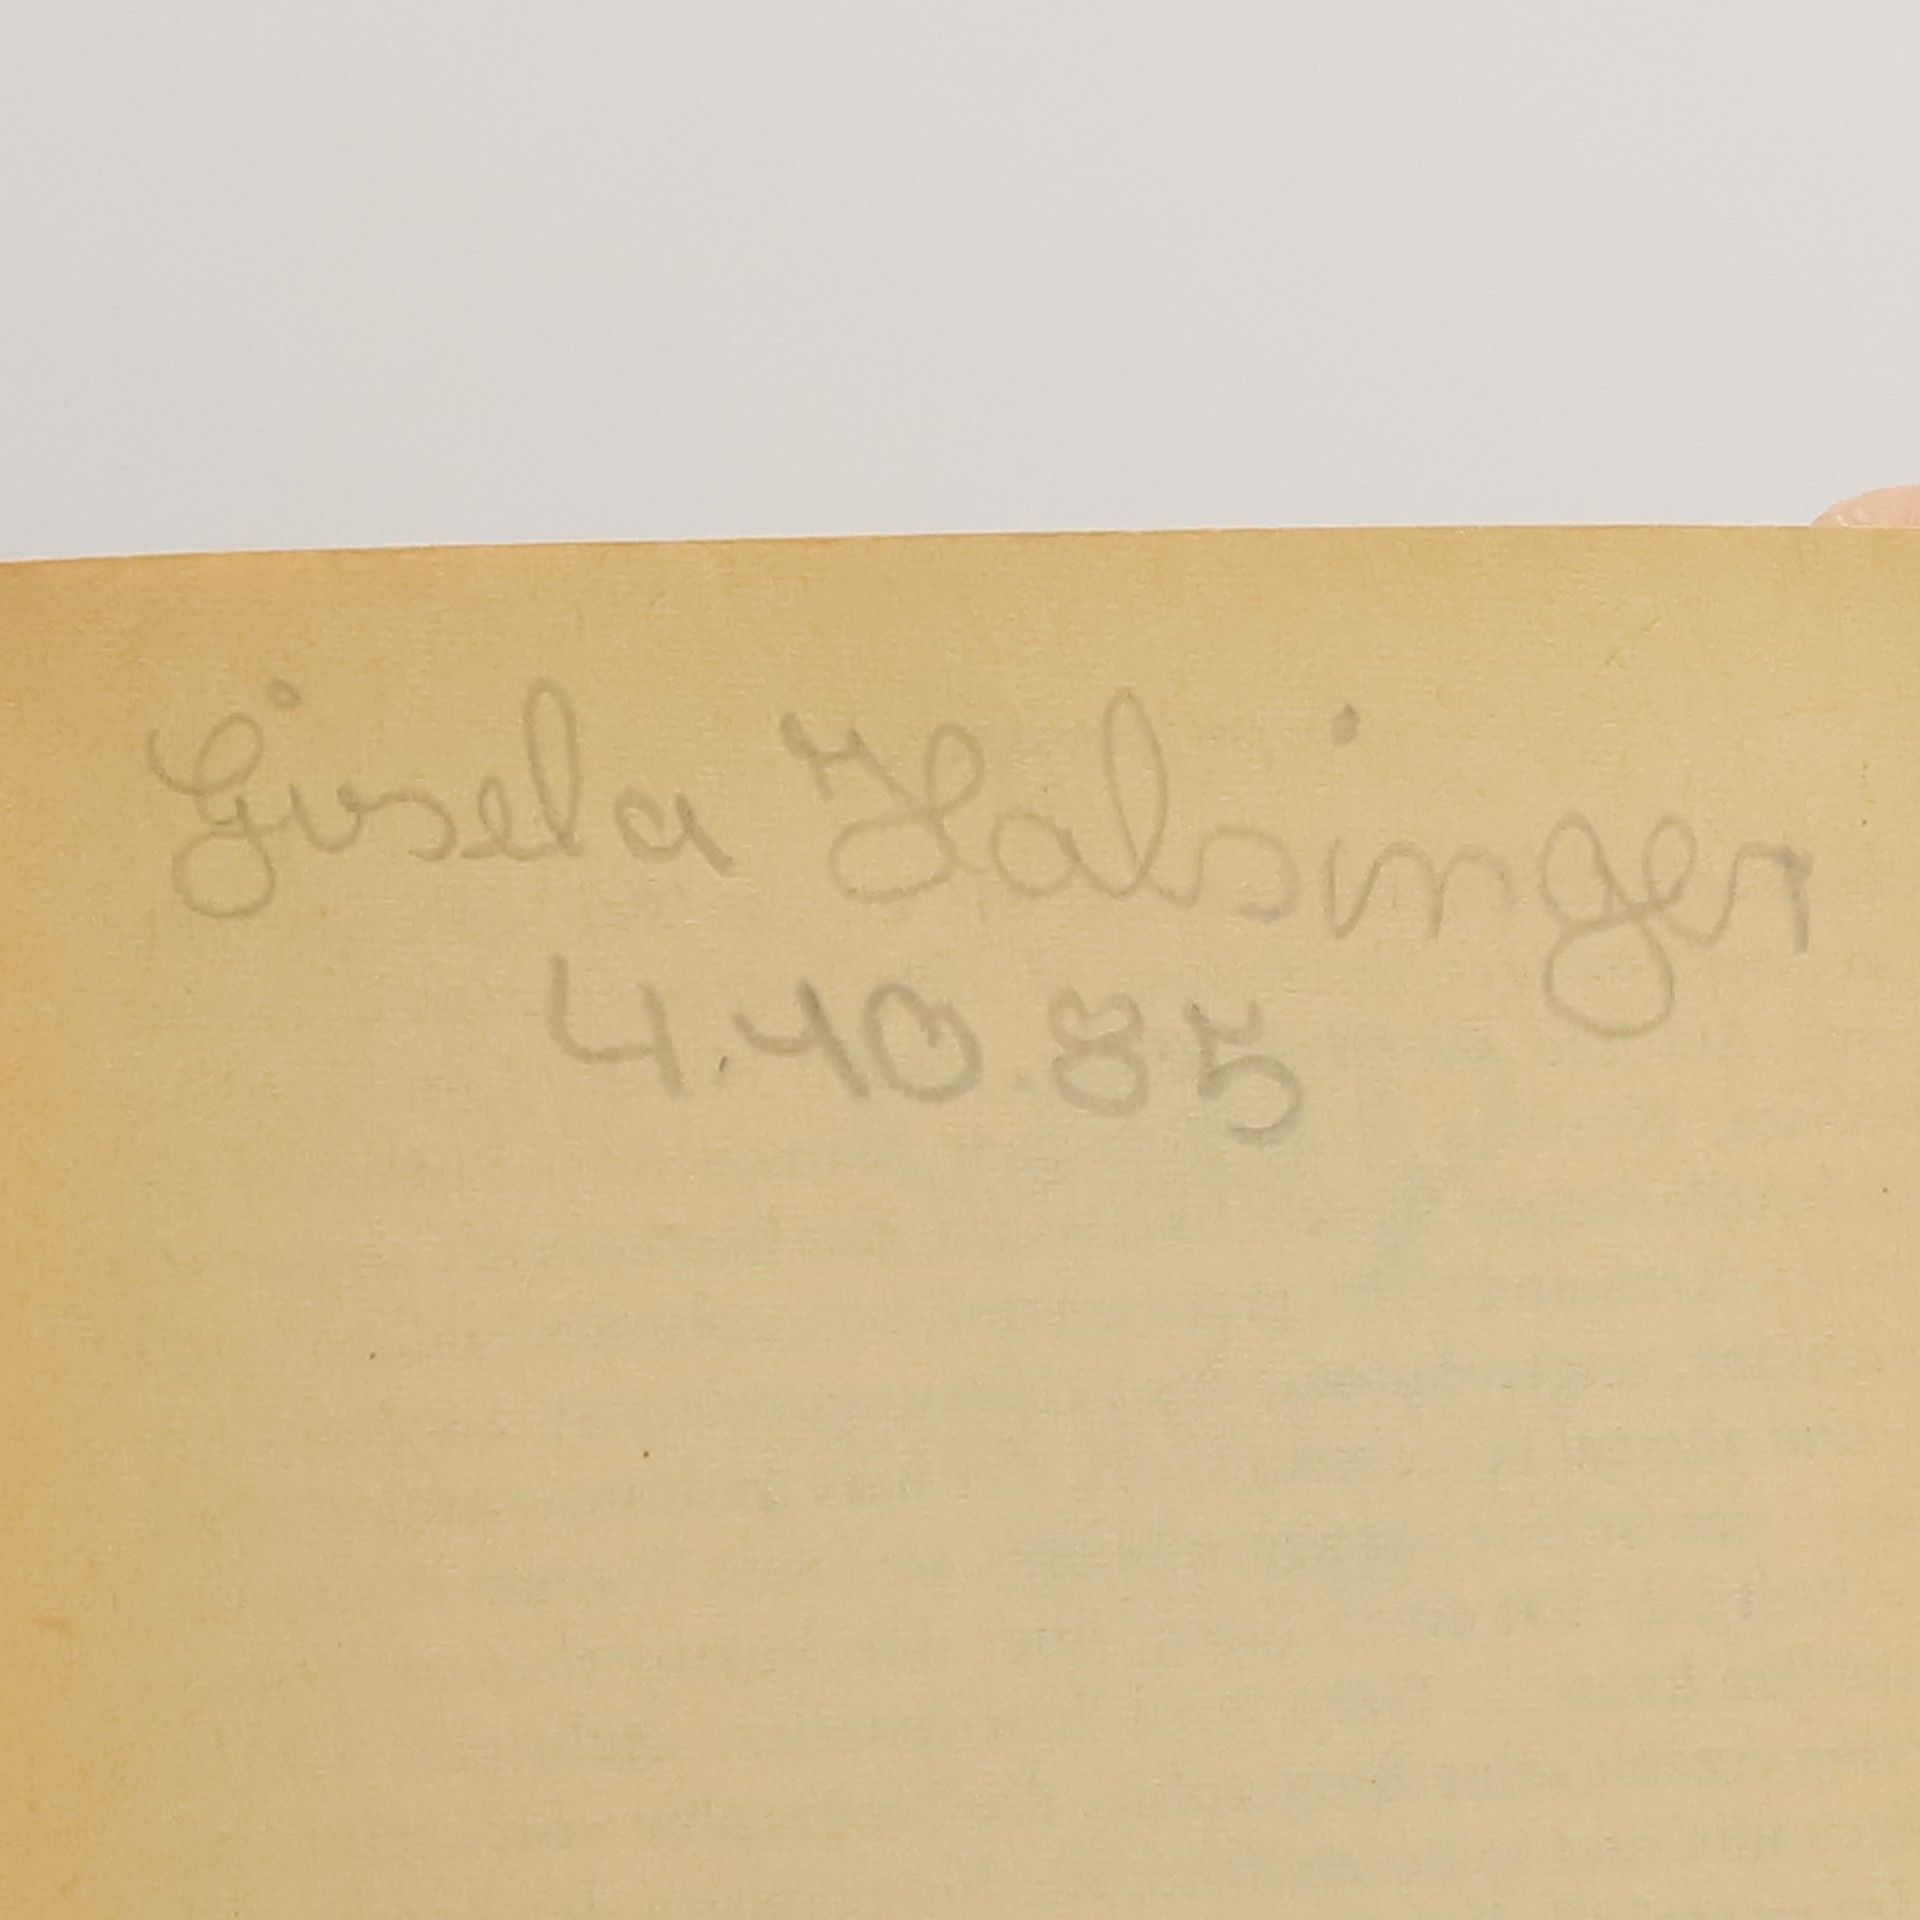 Gisela Halsinger
4.10.85